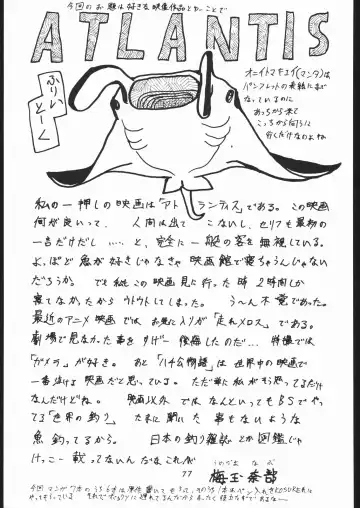 今回のお題は好きな映像作品とゆーことで
ATLANTIS
ふりぃとーく
オニイトマキエイ(マンタ)は
パンフレットの表紙にまで
なっているのに
あっちから来て
こっちから向うに
行くだけなのよね
私の一押しの映画は「アトランティス」である。この映画
何が良いって、人間は出てこないし、セリフも最初の
一言だけだし……と、完全に一般の客を無視している。
よっぽど魚が好きじゃなきゃ映画館で寝ちゃうんじゃない
だろうか。でも私この映画見に行った時2時間しか
寝てなかったからウトウトしてしまった。う〜ん不覚であった。
最近のアニメ映画ではお気に入りが「走れメロス」である。
劇場で見なかった事をすげー後悔したのだ…特撮では
「ガメラ」が好き。あと「ハチ公物語」は世界中の映画で
一番泣ける映画だと思っているよ。ただ単に私がそう思ってるだけ
なんだけどね。映画以外ではなんといってもBSでやっ
てる「世界の釣り」たまに聞いた事もないような
魚釣ってるから。日本の釣り雑誌とか図鑑じゃ
けっこー載ってないんだなこれが
77
梅王奈部